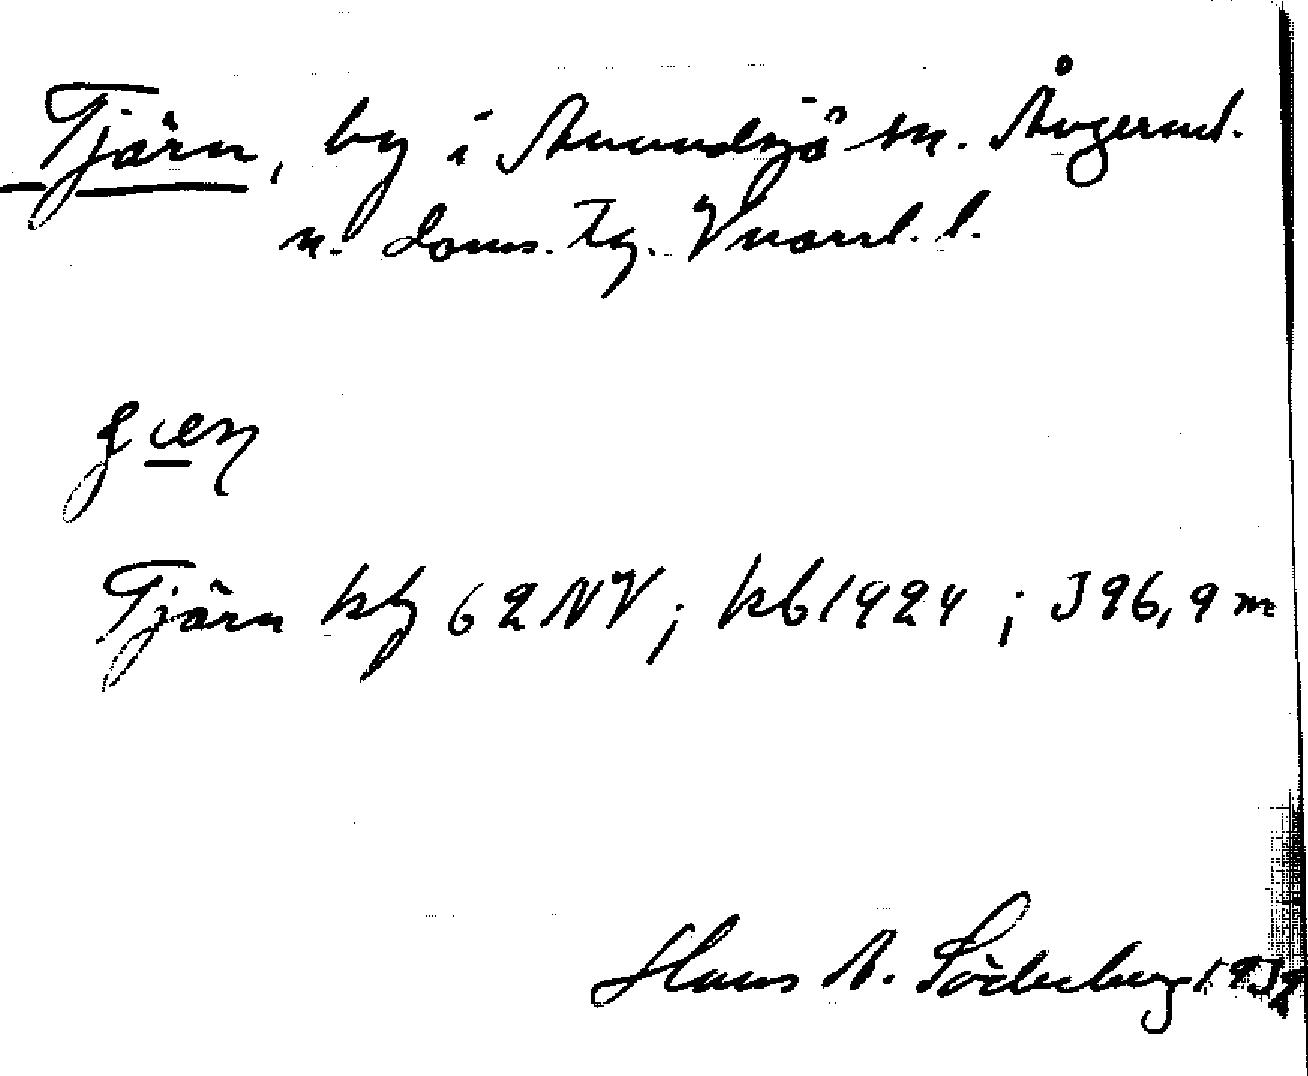 Tjärn, by i Anundsjö sn. Ångerml.
n. doms. Tg. Vnorrl. l.
Tjärn kbl 62 NV; kb 1924; J 96,9 m
Hans A. Söderberg 1932